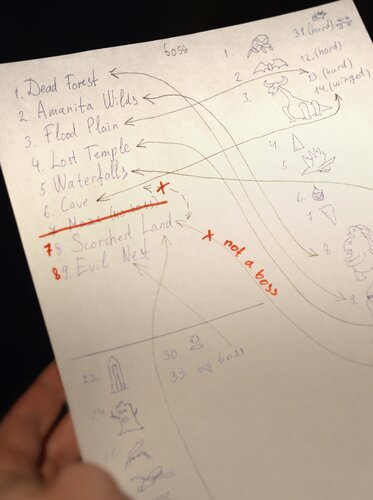 boss
1. Dead Forest
2. Amanita Wilds
3. Flood Plain
4. Lost Temple
5 Waterfalls
6. Cave
7 8 Scorched Land
8 9. Evil Nest
x
x not a boss
1.
2
3.
4
6
7
8
9.
31. (hard)
12. (hard)
13. (hard)
14. (winged)
23.
24
30.
33. big boss